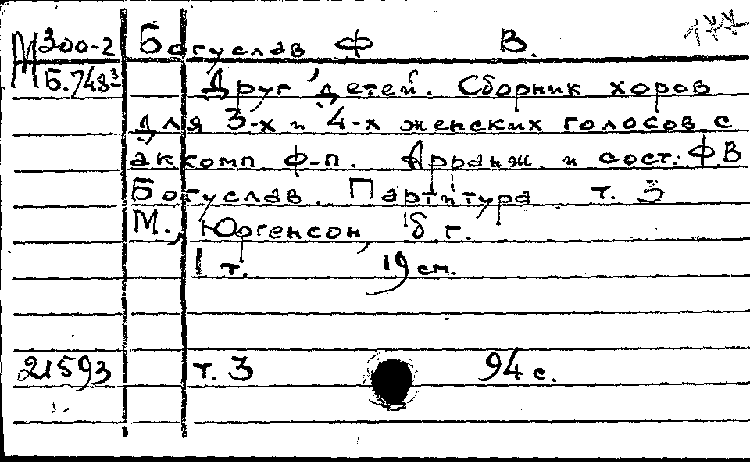 М 300-2 Богуслав Ф В. 177
Б.748³ Друг детей. Сборник хоров
для 3-х и 4-х женских голосов с
аккомп ф-п. Арранж. и сост. Ф В
Богуслав. Партитура т. 3
М., Юргенсон, б г.
1 т. 19 см.
21593 т. 3 94 с.